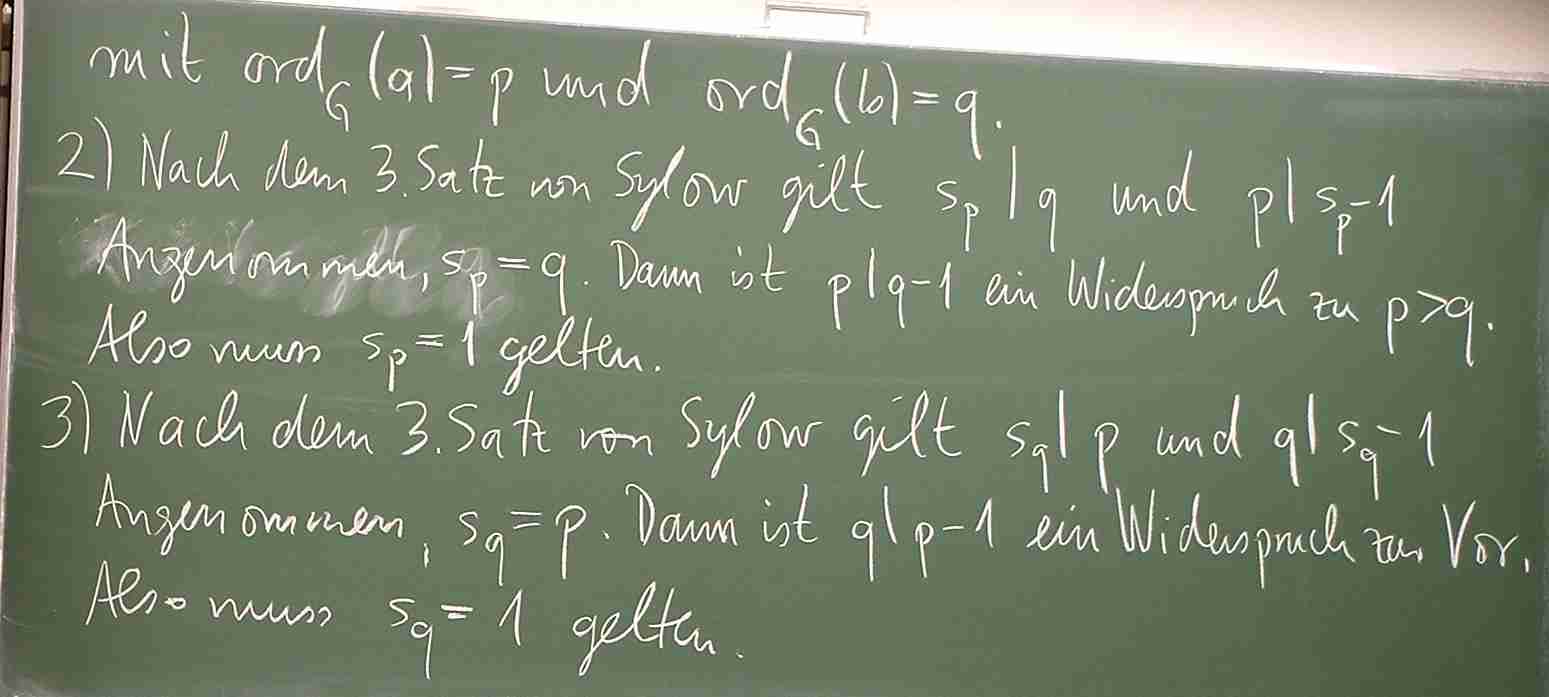 mit ord_G (a) = p und ord_G (b) = q.
2) Nach dem 3. Satz von Sylow gilt s_p | q und p | s_p - 1
Angenommen, s_p = q. Dann ist p | q - 1 ein Widerspruch zu p > q.
Also muss s_p = 1 gelten.
3) Nach dem 3. Satz von Sylow gilt s_q | p und q | s_q - 1
Angenommen, s_q = p. Dann ist q | p - 1 ein Widerspruch zur Vor.
Also muss s_q = 1 gelten.